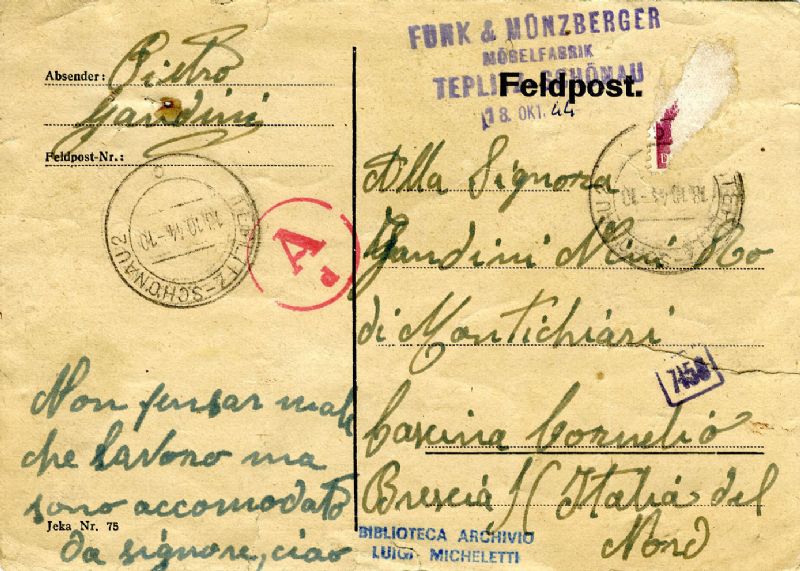 FURK & MÜNZBERGER
MÖBELFABRIK
TEPLITZ-SCHÖNAU
18. OKT. 44
Feldpost.
Absender: Pietro
Gandini
Feldpost-Nr.:
TEPLITZ-SCHÖNAU 2
18.10.44-10
A
d
Alla Signora
Gandini
di Montichiari
Cascina Cornelio
Brescia (Italia del
Nord
TEPLITZ-SCHÖNAU
18.10.44-10
7456
Non pensar male
che lavoro ma
sono accomodato
da signore, ciao
Jeka Nr. 75
BIBLIOTECA ARCHIVIO
LUIGI MICHELETTI